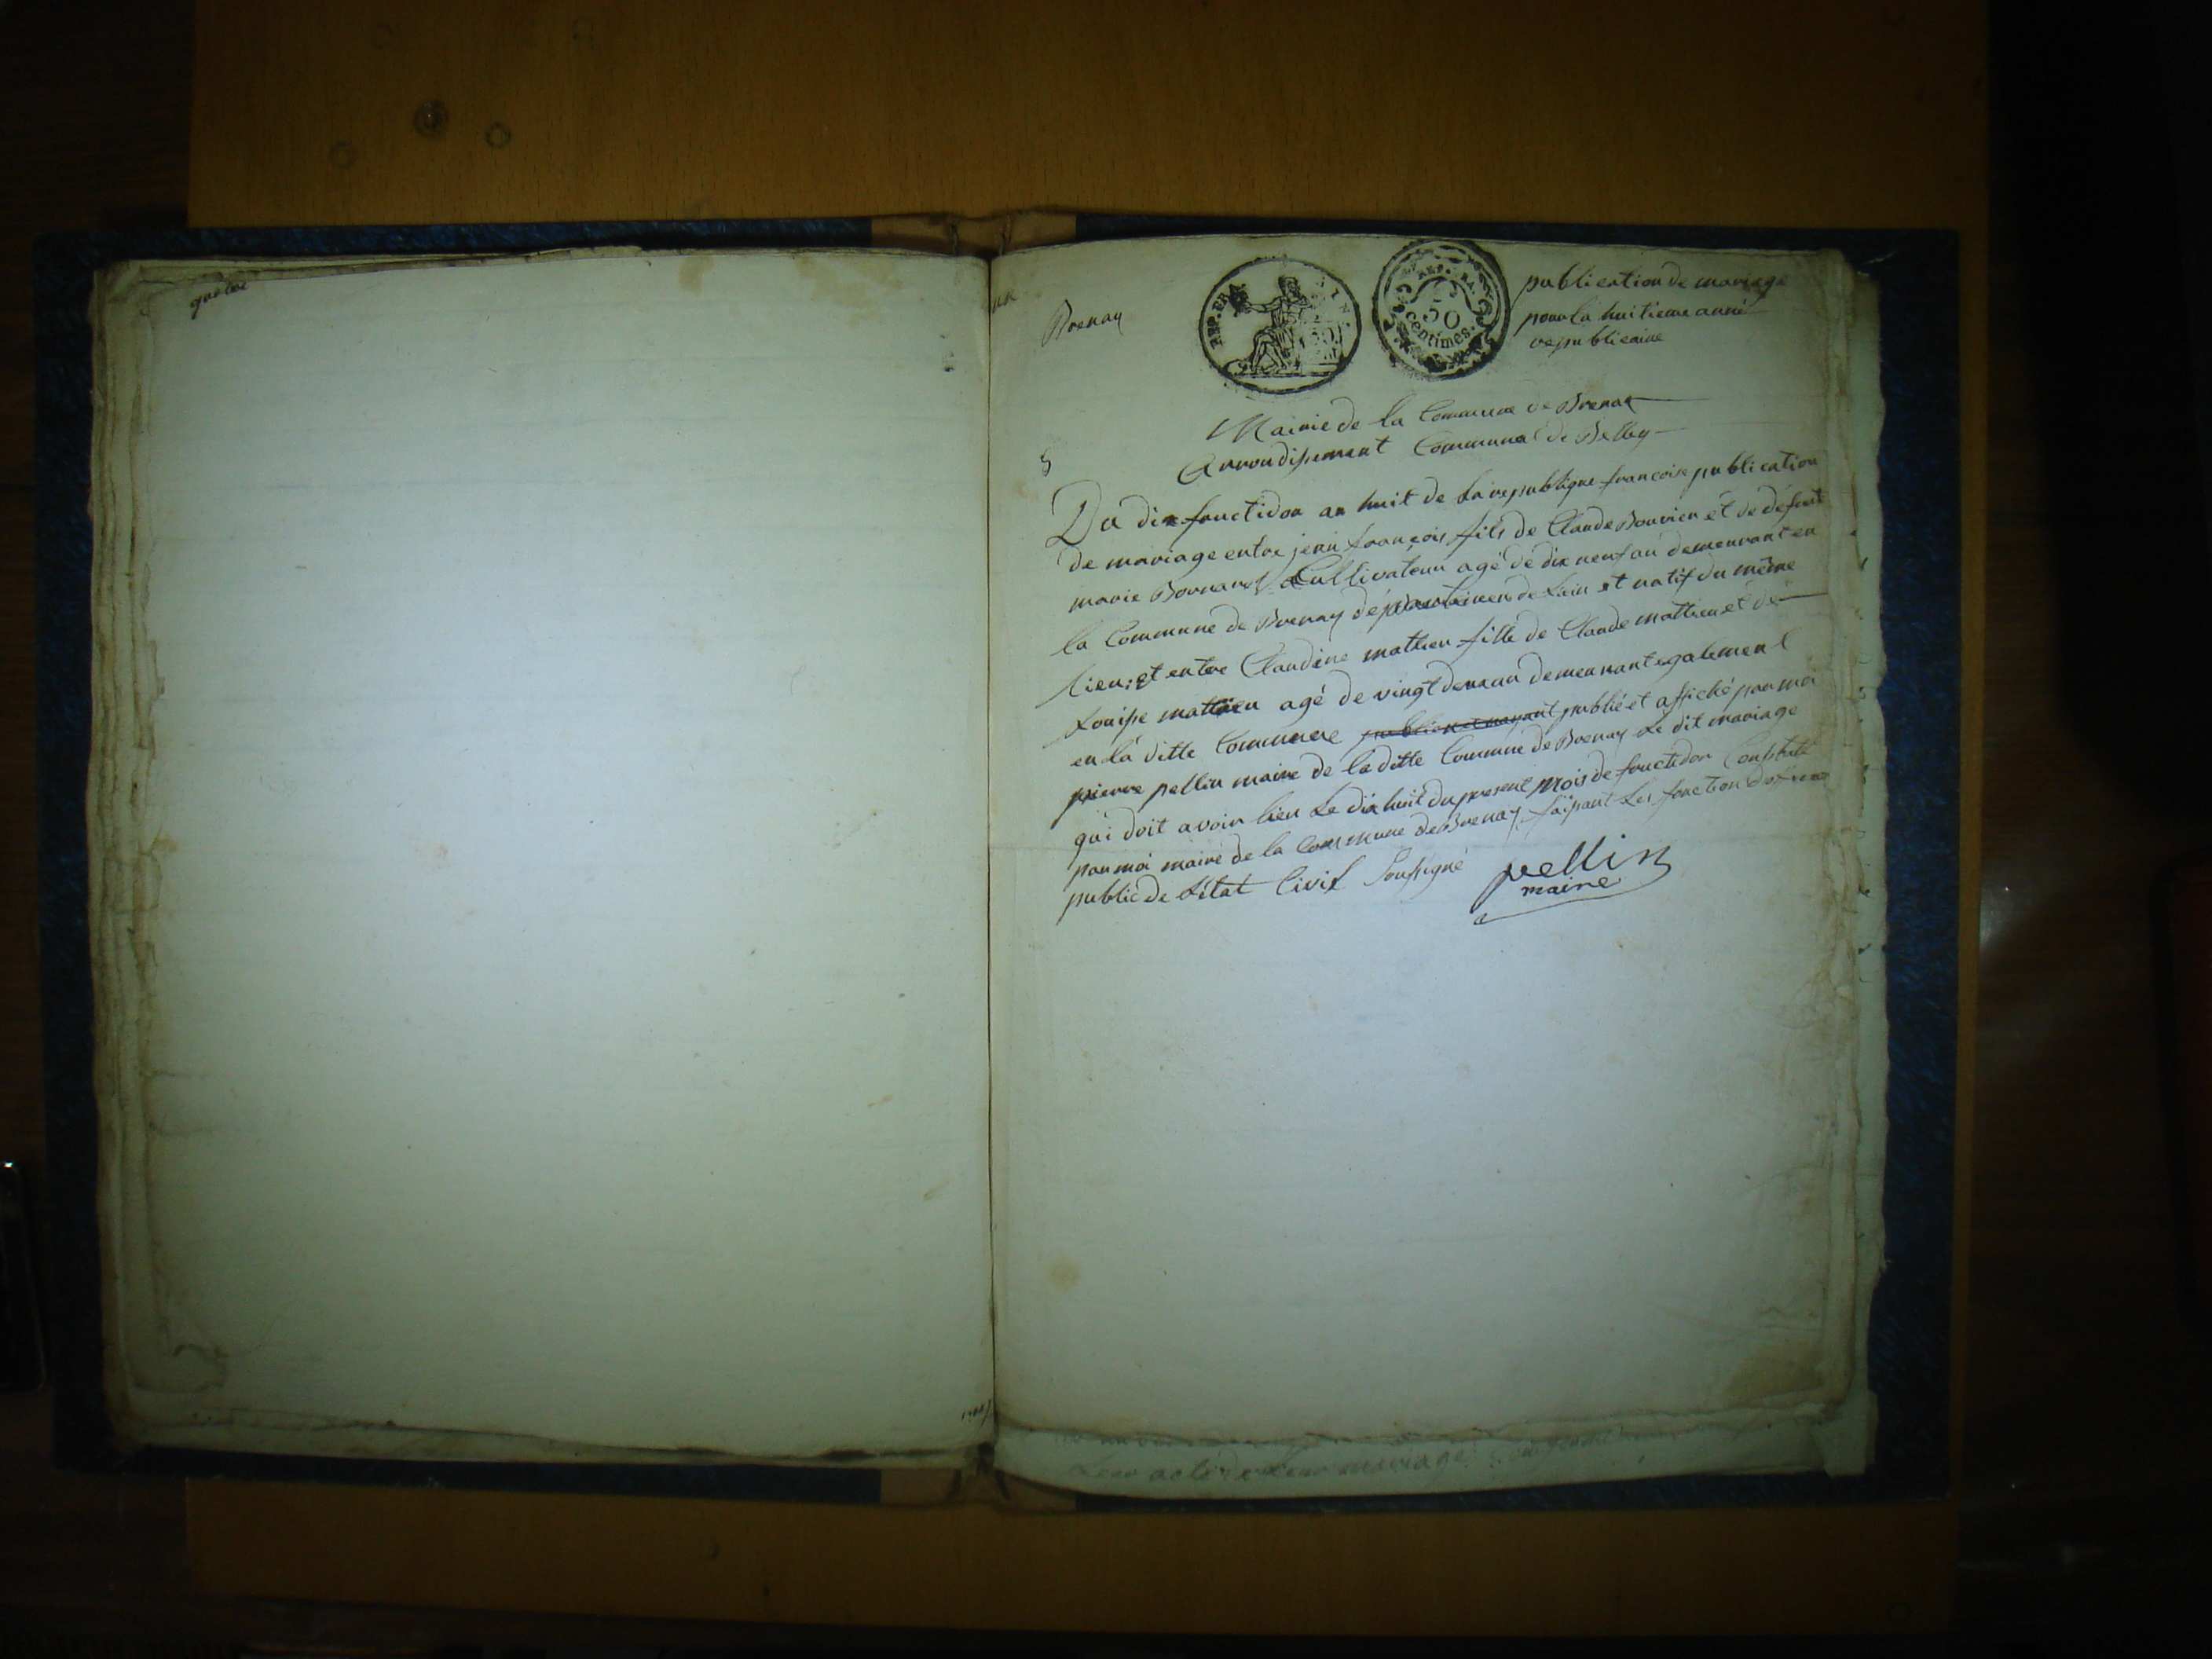 quatre
Brenay
REP. FRA.
AIN.
REP. FRA.
50
centimes.
publication de mariage
pour la huitieme anné
republicaine
Mairie de la Commune de Brenay
Arrondissement Communal de Belley
5
Du dix fructidor an huit de la republique francoise publication
de mariage entre jean francois fils de Claude Bouvier et de defunt
marie Bornard Cultivateur agé de dix neuf an demeurant en
la Commune de Brenay département de Lain et natif du même
lieu; et entre Claudine mathieu fille de Claude mathieu et de
Louise mathieu agé de vingt deux an demeurant egalement
en la ditte Commune publié et affiché par moi
pierre pellin maire de la ditte Commune de Brenay le dit mariage
qui doit avoir lieu le dix huit du present mois de fructidor Constaté
par moi maire de la Commune de Brenay faisant les fonction
public de Létat Civil Soussigné
pellin
maire